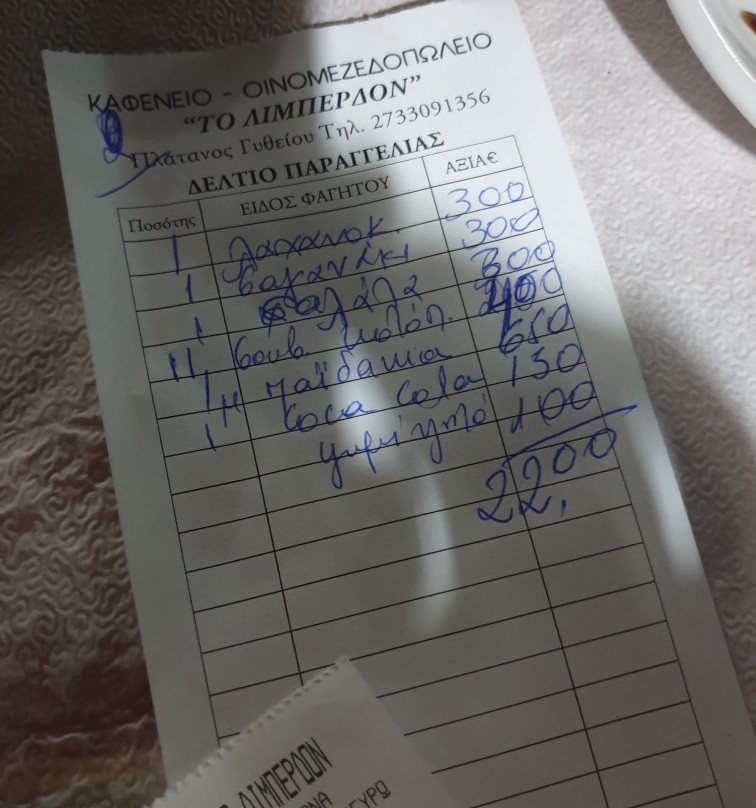 ΚΑΦΕΝΕΙΟ - ΟΙΝΟΜΕΖΕΔΟΠΩΛΕΙΟ
"ΤΟ ΛΙΜΠΕΡΔΟΝ"
Πλάτανος Γυθείου Τηλ. 2733091356
ΔΕΛΤΙΟ ΠΑΡΑΓΓΕΛΙΑΣ
Ποσότης ΕΙΔΟΣ ΦΑΓΗΤΟΥ ΑΞΙΑ€
1 λαχανοκ. 300
1 σαγανάκι 300
1 σαλάτα 300
11 σουβ κοτόπ. 400
1 παϊδακια 650
coca cola 150
1 ψωμί 100
22,00
ΛΙΜΠΕΡΔΟΝ